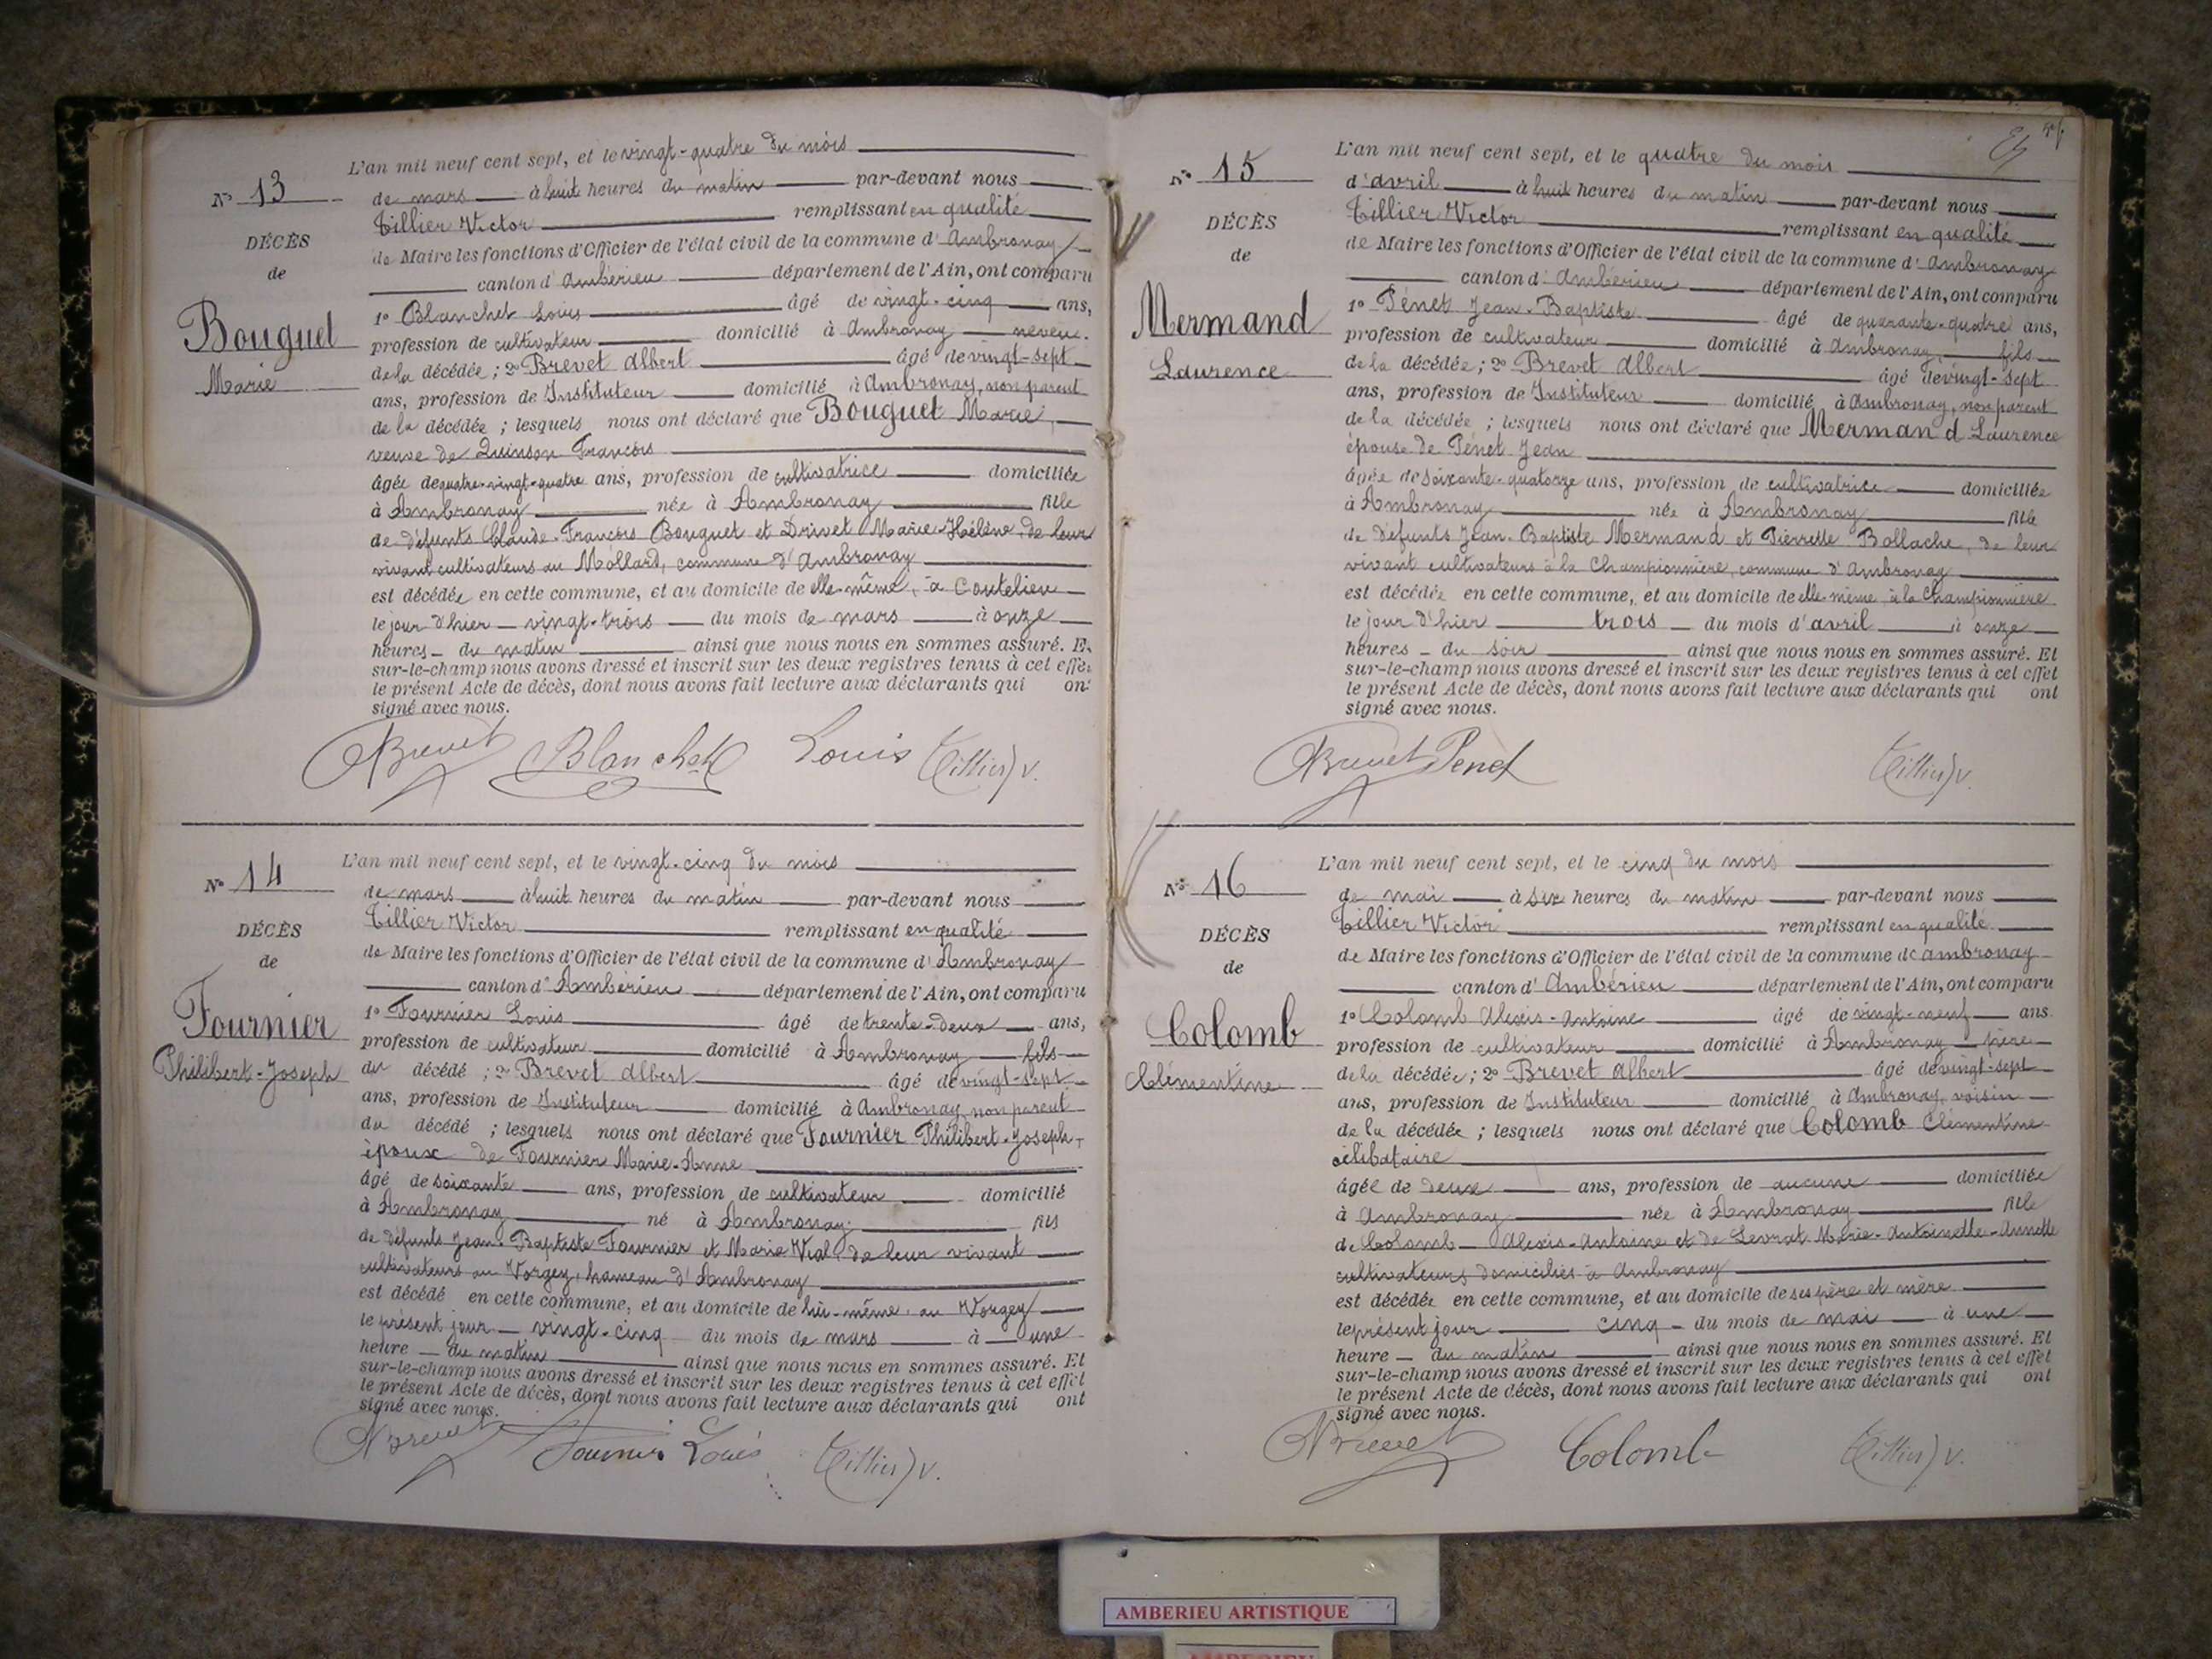 N° 13
DÉCÈS
de
Bouguet
Marie
L'an mil neuf cent sept, et le vingt-quatre du mois
de mars à huit heures du matin par-devant nous
Tillier Victor remplissant en qualité
de Maire les fonctions d'Officier de l'état civil de la commune d'Ambronay
canton d'Ambérieu département de l'Ain, ont comparu
1° Blanchet Louis âgé de vingt-cinq ans,
profession de cultivateur domicilié à Ambronay neveu
de la décédée ; 2° Brevet Albert âgé de vingt-sept
ans, profession de Instituteur domicilié à Ambronay, non parent
de la décédée ; lesquels nous ont déclaré que Bouguet Marie,
veuve de Quinson François
âgée de quatre-vingt-quatre ans, profession de cultivatrice domiciliée
à Ambronay née à Ambronay fille
de défunts Claude-François Bouguet et Drivet Marie-Hélène, de leur
vivant cultivateurs au Mollard, commune d'Ambronay
est décédée en cette commune, et au domicile de elle-même, à Coutelieu
le jour d'hier vingt-trois du mois de mars à onze
heures du matin ainsi que nous nous en sommes assuré. Et
sur-le-champ nous avons dressé et inscrit sur les deux registres tenus à cet effet
le présent Acte de décès, dont nous avons fait lecture aux déclarants qui ont
signé avec nous.
Brevet Blanchet Louis Tillier V.
N° 14
DÉCÈS
de
Fournier
Philibert-Joseph
L'an mil neuf cent sept, et le vingt-cinq du mois
de mars à huit heures du matin par-devant nous
Tillier Victor remplissant en qualité
de Maire les fonctions d'Officier de l'état civil de la commune d'Ambronay
canton d'Ambérieu département de l'Ain, ont comparu
1° Fournier Louis âgé de trente-deux ans,
profession de cultivateur domicilié à Ambronay fils
du décédé ; 2° Brevet Albert âgé de vingt-sept
ans, profession de Instituteur domicilié à Ambronay non parent
du décédé ; lesquels nous ont déclaré que Fournier Philibert-Joseph,
époux de Fournier Marie-Anne
âgé de soixante ans, profession de cultivateur domicilié
à Ambronay né à Ambronay fils
de défunts Jean-Baptiste Fournier et Marie Vial, de leur vivant
cultivateurs au Vorgey, hameau d'Ambronay
est décédé en cette commune, et au domicile de lui-même, au Vorgey
le présent jour vingt-cinq du mois de mars à une
heure du matin ainsi que nous nous en sommes assuré. Et
sur-le-champ nous avons dressé et inscrit sur les deux registres tenus à cet effet
le présent Acte de décès, dont nous avons fait lecture aux déclarants qui ont
signé avec nous.
Brevet Fournier Louis Tillier V.
N° 15
DÉCÈS
de
Mermand
Laurence
L'an mil neuf cent sept, et le quatre du mois
d'avril à huit heures du matin par-devant nous
Tillier Victor remplissant en qualité
de Maire les fonctions d'Officier de l'état civil de la commune d'Ambronay
canton d'Ambérieu département de l'Ain, ont comparu
1° Pénet Jean-Baptiste âgé de quarante-quatre ans,
profession de cultivateur domicilié à Ambronay, fils
de la décédée ; 2° Brevet Albert âgé de vingt-sept
ans, profession de Instituteur domicilié à Ambronay, non parent
de la décédée ; lesquels nous ont déclaré que Mermand Laurence
épouse de Pénet Jean
âgée de soixante-quatorze ans, profession de cultivatrice domiciliée
à Ambronay née à Ambronay fille
de défunts Jean-Baptiste Mermand et Pierrette Bollache, de leur
vivant cultivateurs à la Championnière, commune d'Ambronay
est décédée en cette commune, et au domicile de elle-même à la Championnière
le jour d'hier trois du mois d'avril à onze
heures du soir ainsi que nous nous en sommes assuré. Et
sur-le-champ nous avons dressé et inscrit sur les deux registres tenus à cet effet
le présent Acte de décès, dont nous avons fait lecture aux déclarants qui ont
signé avec nous.
Brevet Penet Tillier V.
N° 16
DÉCÈS
de
Colomb
Clémentine
L'an mil neuf cent sept, et le cinq du mois
de mai à six heures du matin par-devant nous
Tillier Victor remplissant en qualité
de Maire les fonctions d'Officier de l'état civil de la commune de Ambronay
canton d'Ambérieu département de l'Ain, ont comparu
1° Colomb Alexis-Antoine âgé de vingt-neuf ans
profession de cultivateur domicilié à Ambronay père
de la décédée ; 2° Brevet Albert âgé de vingt-sept
ans, profession de Instituteur domicilié à Ambronay, voisin
de la décédée ; lesquels nous ont déclaré que Colomb Clémentine
célibataire
âgée de deux ans, profession de aucune domiciliée
à Ambronay née à Ambronay fille
de Colomb Alexis-Antoine et de Levrat Marie-Antoinette-Annette
cultivateurs domiciliés à Ambronay
est décédée en cette commune, et au domicile de ses père et mère
le présent jour cinq du mois de mai à une
heure du matin ainsi que nous nous en sommes assuré. Et
sur-le-champ nous avons dressé et inscrit sur les deux registres tenus à cet effet
le présent Acte de décès, dont nous avons fait lecture aux déclarants qui ont
signé avec nous.
Brevet Colomb Tillier V.
AMBERIEU ARTISTIQUE
AMBERIEU